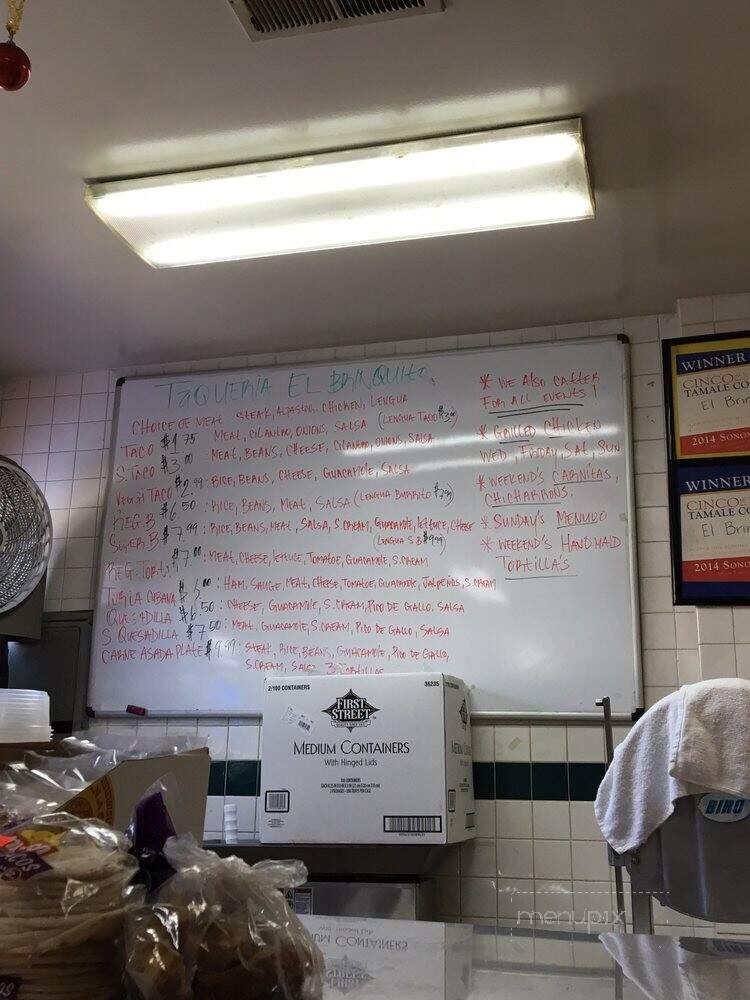 TAQUERIA EL BRINQUITO
CHOICE OF MEAT STEAK, ALPASTOR, CHICKEN, LENGUA
TACO $1.75 MEAT, CILANTRO, ONIONS, SALSA (LENGUA TACO
S. TACO $3.00 MEAT, BEANS, CHEESE, CILANTRO, ONIONS, SALSA
TACO $2.99: RICE, BEANS, CHEESE, GUACAMOLE, SALSA
REG B $6.50: RICE, BEANS, MEAT, SALSA (LENGUA BURRITO
SUPER B $7.99: RICE, BEANS, MEAT, SALSA, S CREAM, GUACAMOLE, LETTUCE, CHEESE
(LENGUA S.B $9.99)
REG. TORTA $7.00: MEAT, CHEESE, LETTUCE, TOMATOE, GUACAMOLE, S.CREAM
CUBANA : HAM, SAUGE, MEAT, CHEESE, TOMATOE, GUACAMOLE, JALPEÑOS, S.CREAM
$6.50: CHEESE, GUACAMOLE, S.CREAM, PICO DE GALLO, SALSA
S QUESADILLA $7.50: MEAT, GUACAMOLE, S.CREAM, PICO DE GALLO, SALSA
CARNE ASADA PLATE $9.99: STEAK, RICE, BEANS, GUACAMOLE, PICO DE GALLO,
S.CREAM, SALSA 3 TORTILLAS
* WE ALSO CATTER
FOR ALL EVENTS!
* GRILLED CHICKEN
WED, FRIDAY, SAT, SUN
* WEEKEND'S CARNITAS,
CHICHARRONS.
* SUNDAY'S MENUDO
* WEEKEND'S HANDMAID
TORTILLA'S
WINNER
CINCO
TAMALE CO
El Brin
2014 SONO
WINNER
CINCO
TAMALE CO
El Brin
2014 SONO
2/100 CONTAINERS
36235
FIRST
STREET
MEDIUM CONTAINERS
With Hinged Lids
BIRO
menupix